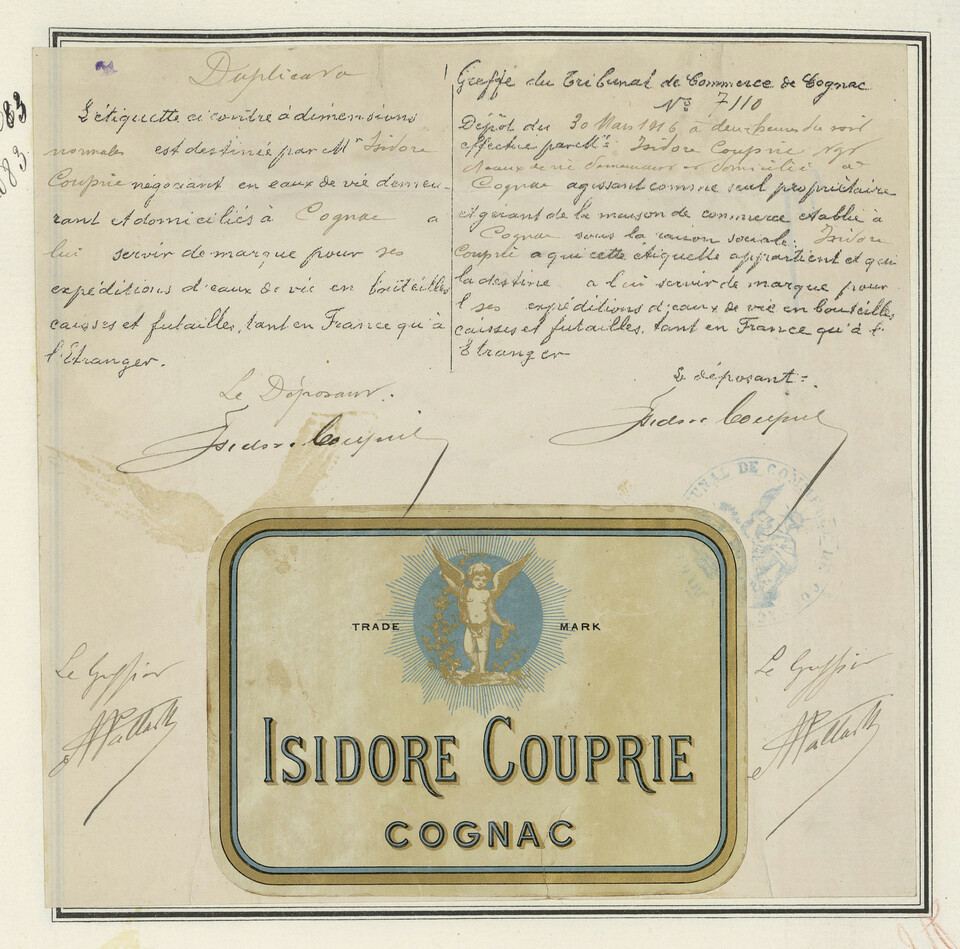 Duplicata
L'étiquette ci contre à dimensions
normales est destinée par Mr Isidore
Couprie négociant en eaux de vie demeu-
rant et domiciliés à Cognac a
lui servir de marque pour ses
expéditions d'eaux de vie en bouteilles
caisses et futailles, tant en France qu'à
l'Etranger.
Le Déposant.
Isidore Couprie
Greffe du Tribunal de Commerce de Cognac
No 7110
Dépôt du 30 Mars 1916, à deux heures du soir
effectué par Mr Isidore Couprie Ngt
d'eaux de vie demeurant et domicilié à
Cognac agissant comme seul propriétaire
et gérant de la maison de commerce etablie à
Cognac sous la raison sociale: Isidore
Couprie a qui cette etiquette appartient et qui
la destine a lui servir de marque pour
ses expéditions d'eaux de vie en bouteilles,
caisses et futailles, tant en France qu'à l'
Etranger
Le déposant:
Isidore Couprie
83
83
TRIBUNAL DE COMMERCE DE
TRADE MARK
ISIDORE COUPRIE
COGNAC
Le Greffier
Le Greffier